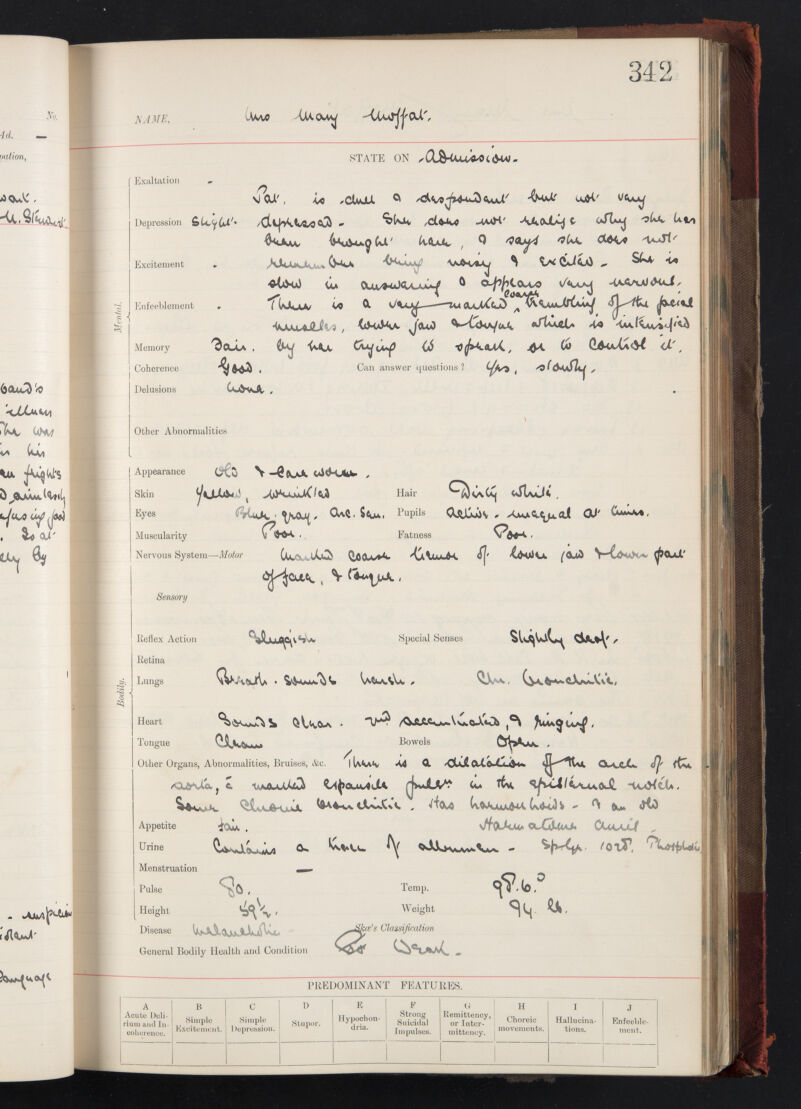 342
No.
NAME, Mrs Mary Moffat.
Ad. —
STATE ON Admission.
pation,
Mental.
Exaltation -
Pat. is dull & despondent but not very
Depression Slight. depressed - She does not realize why she has
been brought here, & says she does not
Excitement - remember being noisy & excited - She is
slow in answering & appears very nervous.
Enfeeblement - There is a very marked coarse trembling of the facial
muscles, lower jaw & tongue which is intensified
Memory Fair. by her trying to speak, or to control it.
Coherence Good. Can answer questions? Yes, slowly.
Delusions None.
Other Abnormalities
Bodily.
Appearance Old & care worn.
Skin Yellow, wrinkled Hair Dirty white.
Eyes Blue-gray. Arc. Sen. Pupils Active - unequal at times.
Muscularity Poor. Fatness Poor.
Nervous System—Motor Marked coarse tremor of lower jaw & lower part
of face, & tongue.
Sensory
Reflex Action Sluggish Special Senses Slightly deaf.
Retina
Lungs Breath. sounds harsh. Chr. Bronchitis.
Heart Sounds clear. 2nd accentuated, & ringing.
Tongue Clean Bowels Open.
Other Organs, Abnormalities, Bruises, &c. There is a dilatation of the arch of the
aorta, c̄ marked expansile pulsn in the episternal notch.
Some Chronic bronchitis. Has hæmorrhoids - & an old
Appetite Fair. Hæmatoma
Urine Contains a trace of albumen - Sp. gr. 1028.
Menstruation —
Pulse 80. Temp. 98.6.°
Height 59½. Weight 94 lb.
Disease Melancholia Skae's Classification
General Bodily Health and Condition Weak.
PREDOMINANT FEATURES.
A Acute Delirium and Incoherence.
B Simple Excitement.
C Simple Depression.
D Stupor.
E Hypochondria.
F Strong Suicidal Impulses.
G Remittency, or Intermittency.
H Choreic movements.
I Hallucinations.
J Enfeeblement.